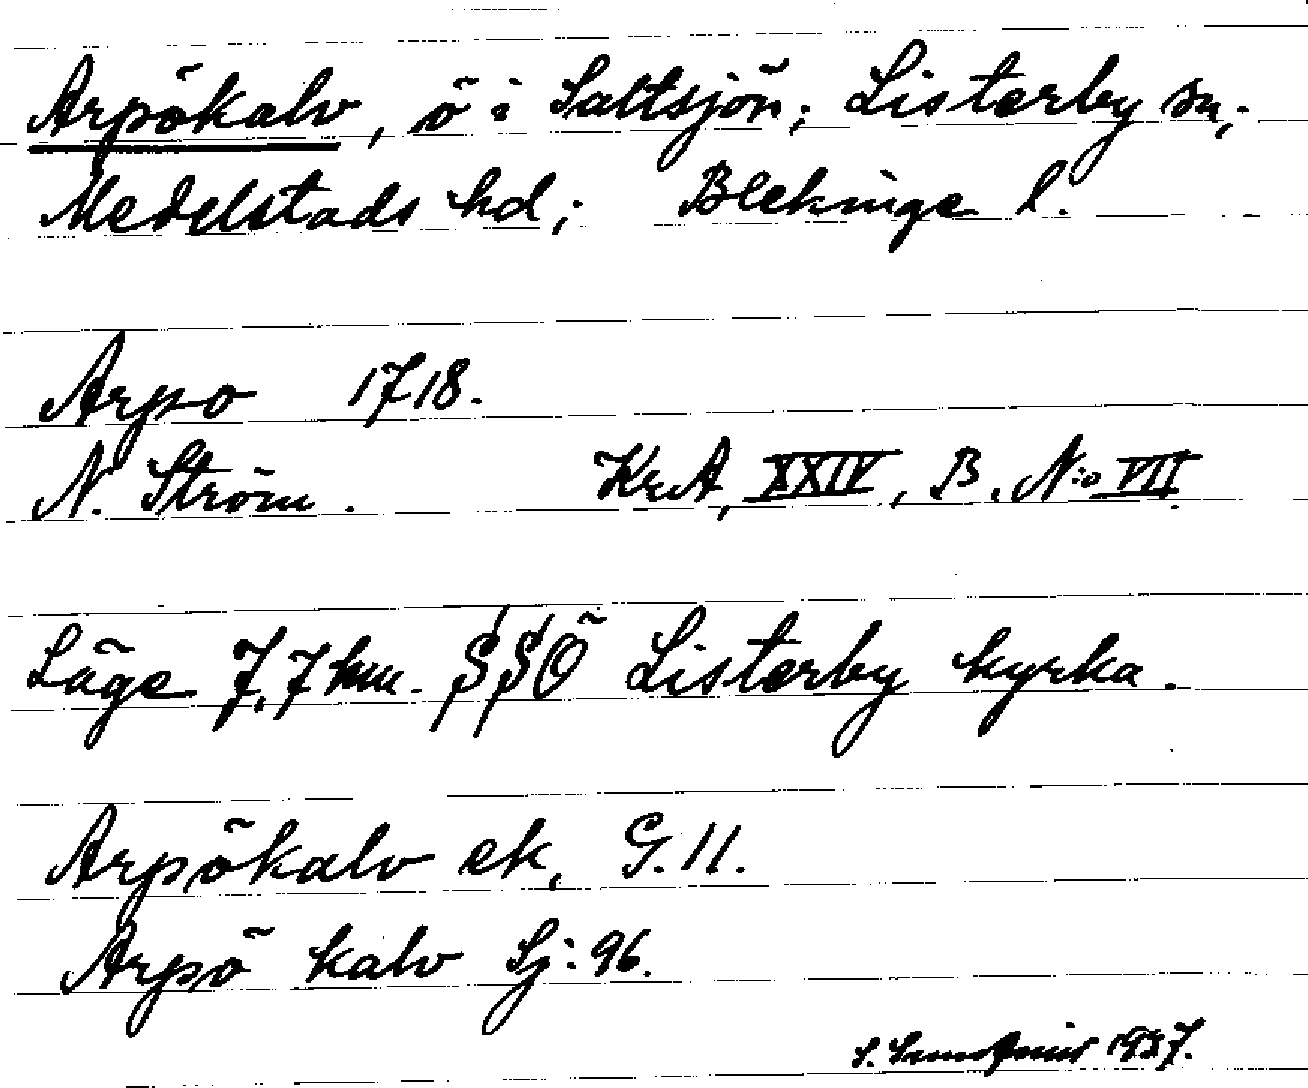 Arpökalv, ö i Saltsjön; Listerby sn,;
Medelstads hd; Blekinge l.
Arpo 1718.
N. Ström. Kr.A, XXIV, B. N:o VII.
Läge 7,7 km. SSÖ Listerby kyrka.
Arpökalv ek, G. 11.
Arpö kalv Sj: 96.
S. 1937.